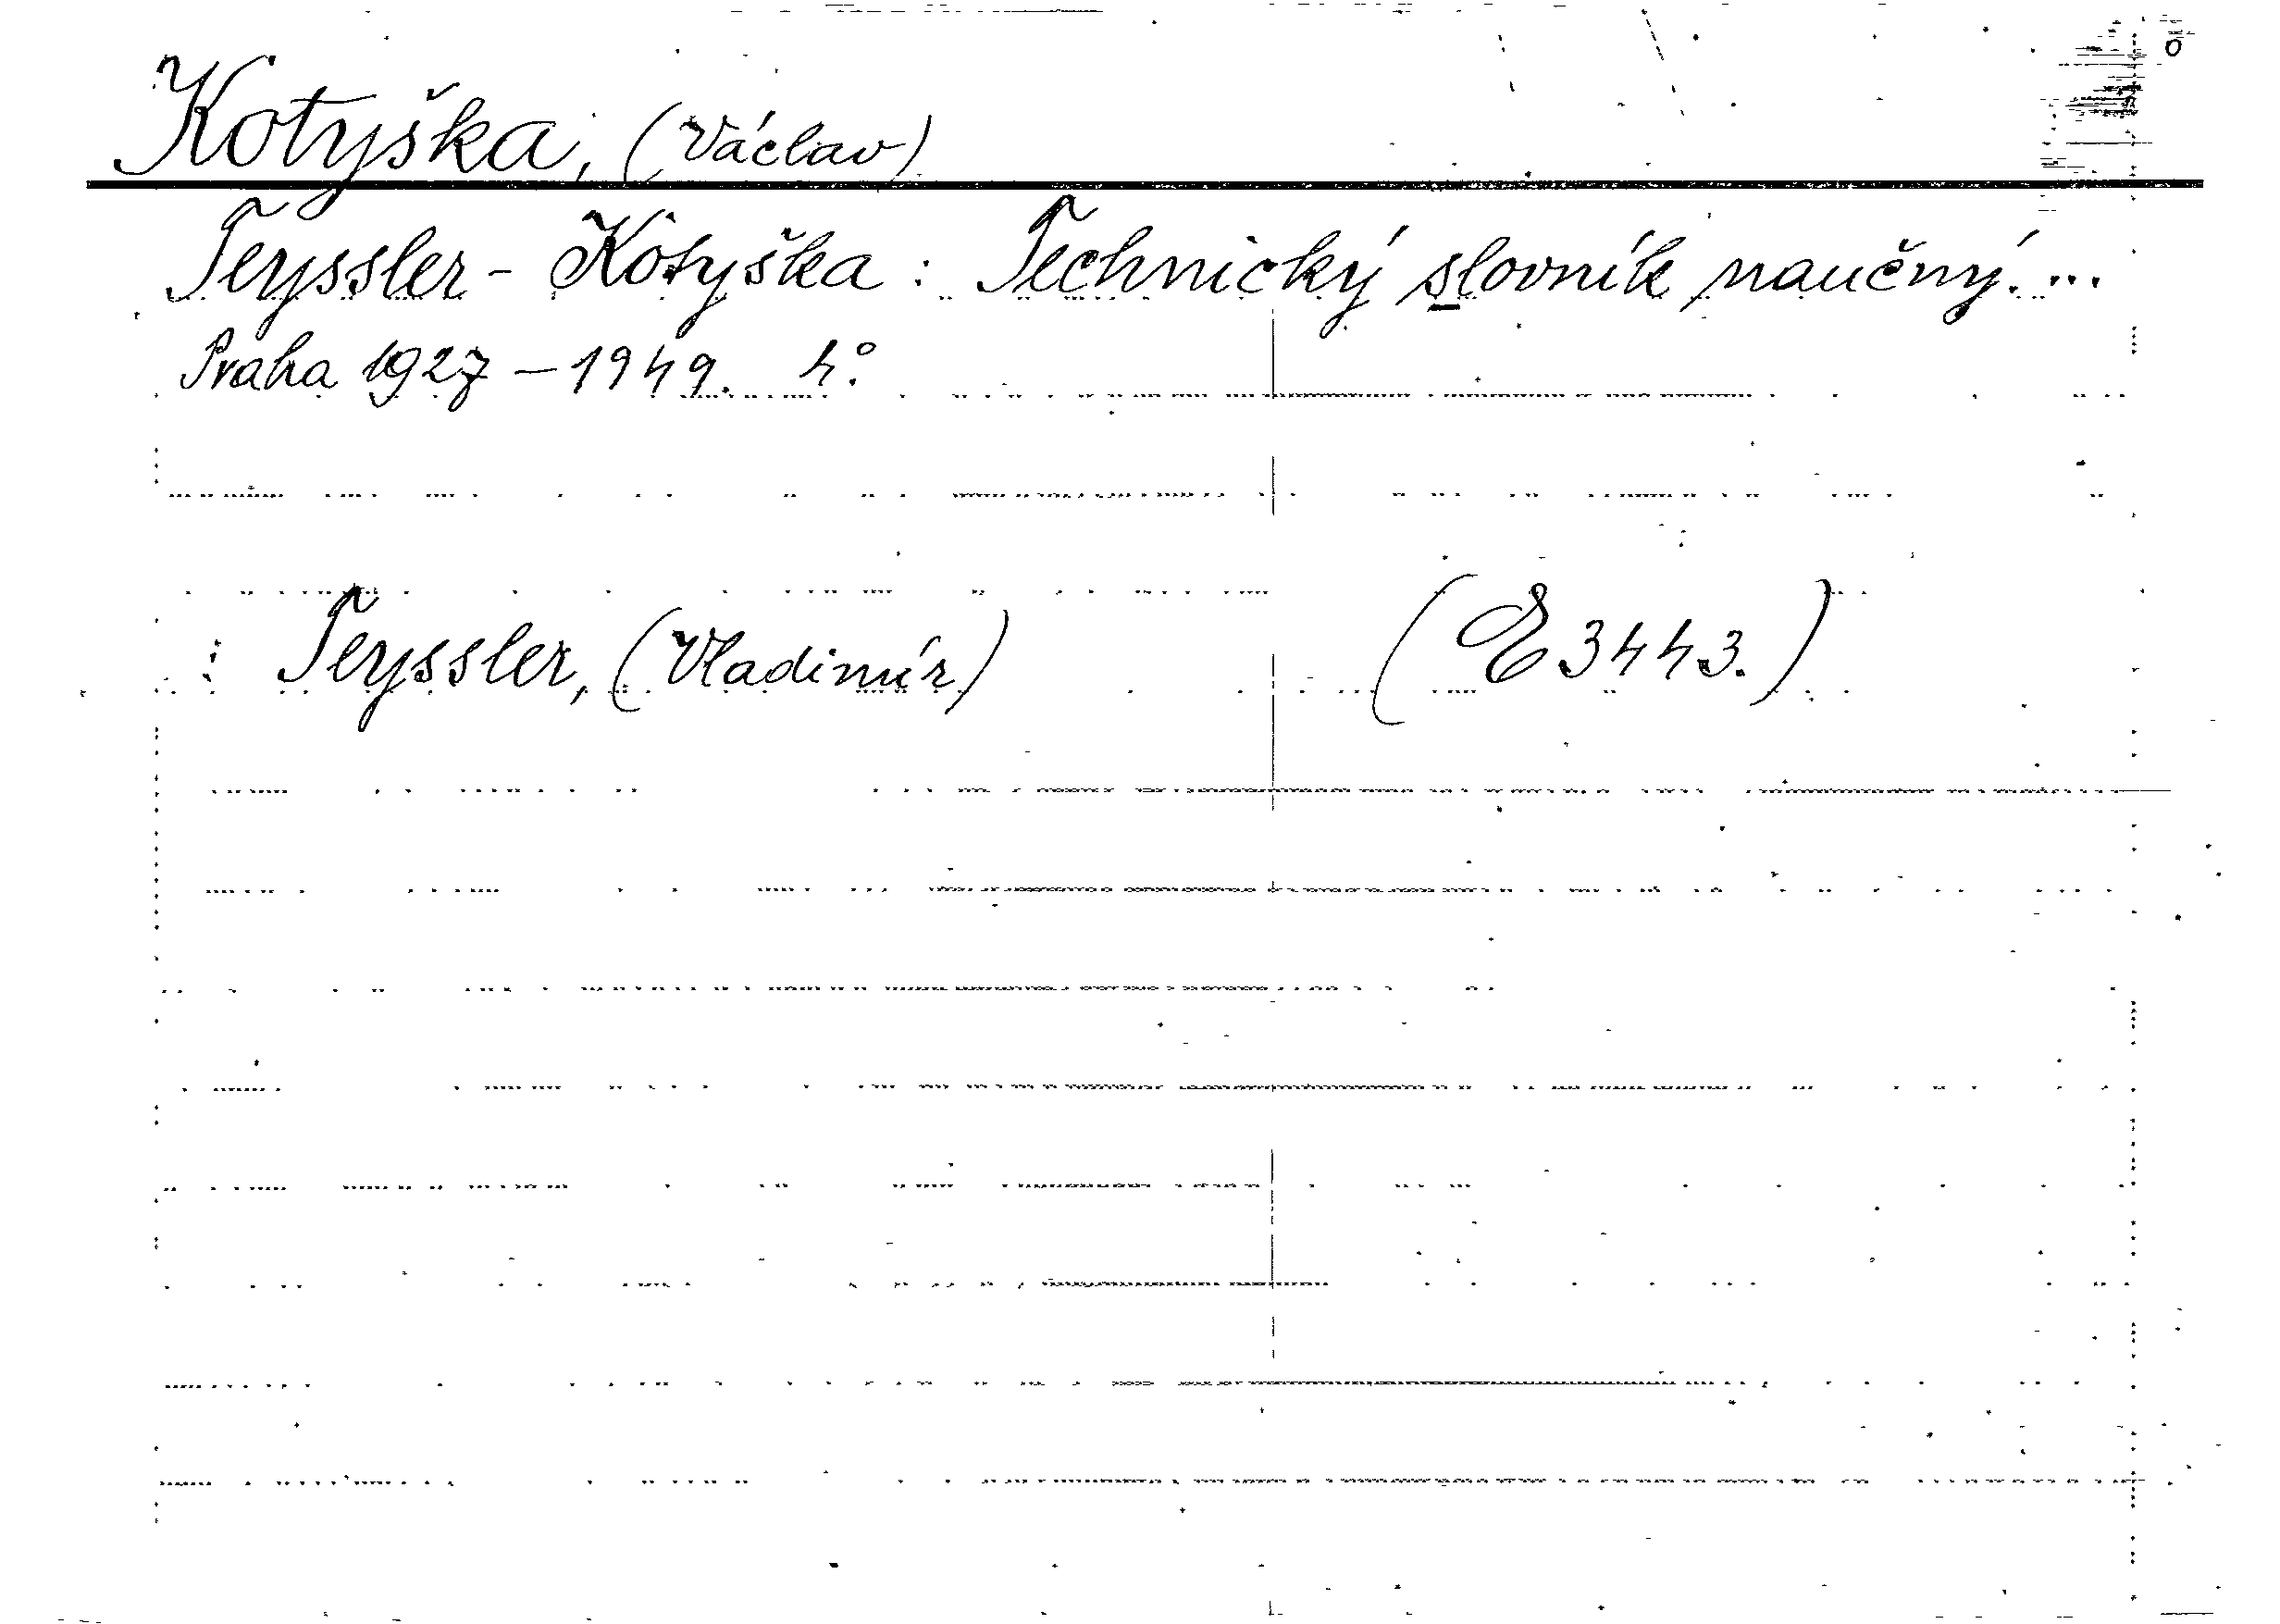 Kotyška, (Václav)
Teyssler - Kotyška : Technický slovník naučný. ...
Praha 1927 – 1949. 4°.
: Teyssler, (Vladimír) (E 3443.)